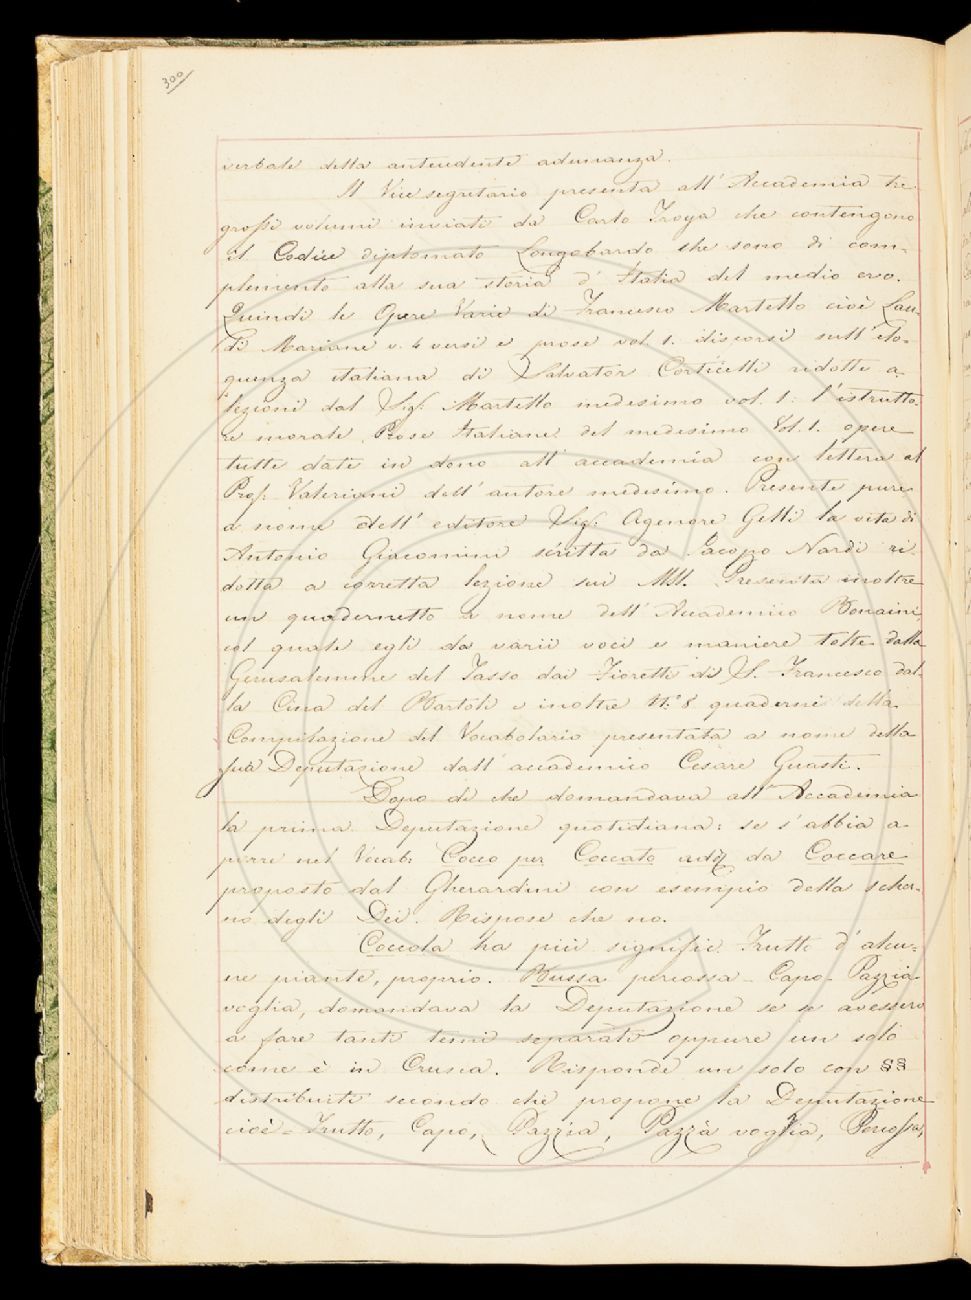 300
verbale della antecedente adunanza.
Il Vice segretario presenta all' Accademia tre
grossi volumi inviati da Carlo Troya che contengono
il Codice diplomato Longobardo che sono di com-
plemento alla sua storia d' Italia del medio evo.
Quindi le Opere Varie di Francesco Martello cioè Lau-
di Mariane v. 4 versi e prose vol. 1. discorsi sull' elo-
quenza italiana di Salvator Corticelli ridotti a
lezioni dal Sig. Martello medesimo vol. 1: l'istrutto-
re morale Prose Italiane del medesimo Vol. 1. opere
tutte date in dono all' accademia con lettera al
Prof. Valeriani dell' autore medesimo. Presentò pure
a nome dell' editore Sig. Agenore Gelli la vita di
Antonio Giacomini scritta da Jacopo Nardi ri-
dotta a corretta lezione sui MSS. Presenta inoltre
un quadernetto a nome dell' Accademico Bonaini,
col quale egli da varii voci e maniere tolte dalla
Gerusalemme del Tasso dai Fioretti di S. Francesco dal-
la Cina del Bartoli e inoltre N.° 8 quaderni della
Compilazione del Vocabolario presentata a nome della
sua Deputazione dall' accademico Cesare Guasti.
Dopo di che domandava all' Accademia
la prima Deputazione quotidiana: se s' abbia a
porre nel Vocab: Cocco per Coccato add. da Coccare
proposto dal Gherardini con esempio della scher-
no degli Dei. Rispose che no.
Coccola ha più signific. Frutto d' alcu-
ne piante, proprio. Bussa percossa - Capo - Pazzia
voglia, domandava la Deputazione se se avessero
a fare tanti temi separati oppure un solo
come è in Crusca. Risponde un solo con §§
distribuiti secondo che propone la Deputazione
cioè - Frutto, Capo, Pazzia, Pazza voglia, Percossa,